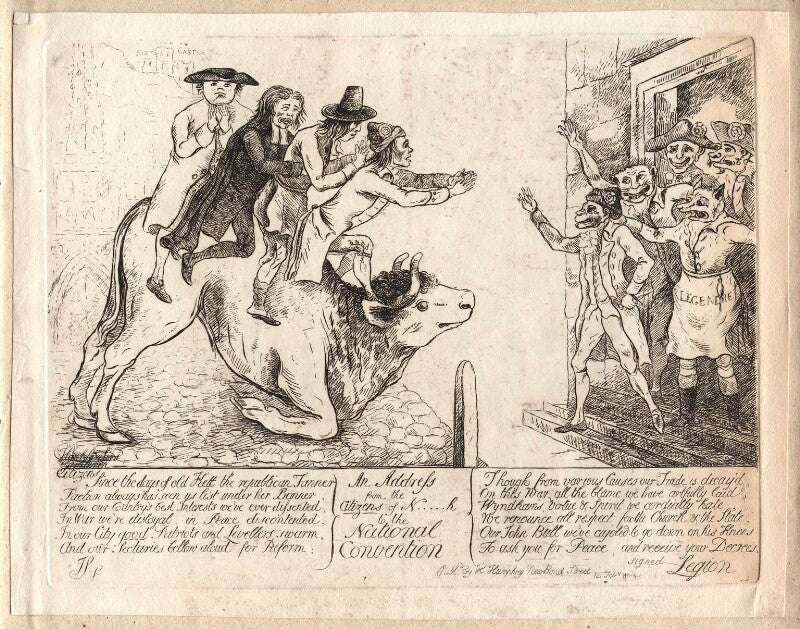 LEGENDRE
Citizens
Since the days of old Kett the republican Tanner
Faction always has seen us list under her Banner
From our Country's best Interests we've ever dissented
In War we're disloyal, in Peace discontented.
In our City good Patriots and Levellers swarm
And our Sectaries bellow aloud for Reform:
An Address
from the
Citizens of N.....h
to the
National
Convention
Though from various Causes our Trade is decay'd,
On this War, all the blame we have artfully laid:
Wyndham's Virtue & Spirit we cordially hate
We renounce all respect for the Church & the State.
Our John Bull we've cajoled to go down on his Knees
To ask you for Peace, and receive your Decrees.
signed Legion
by H Humphry New Bond Street